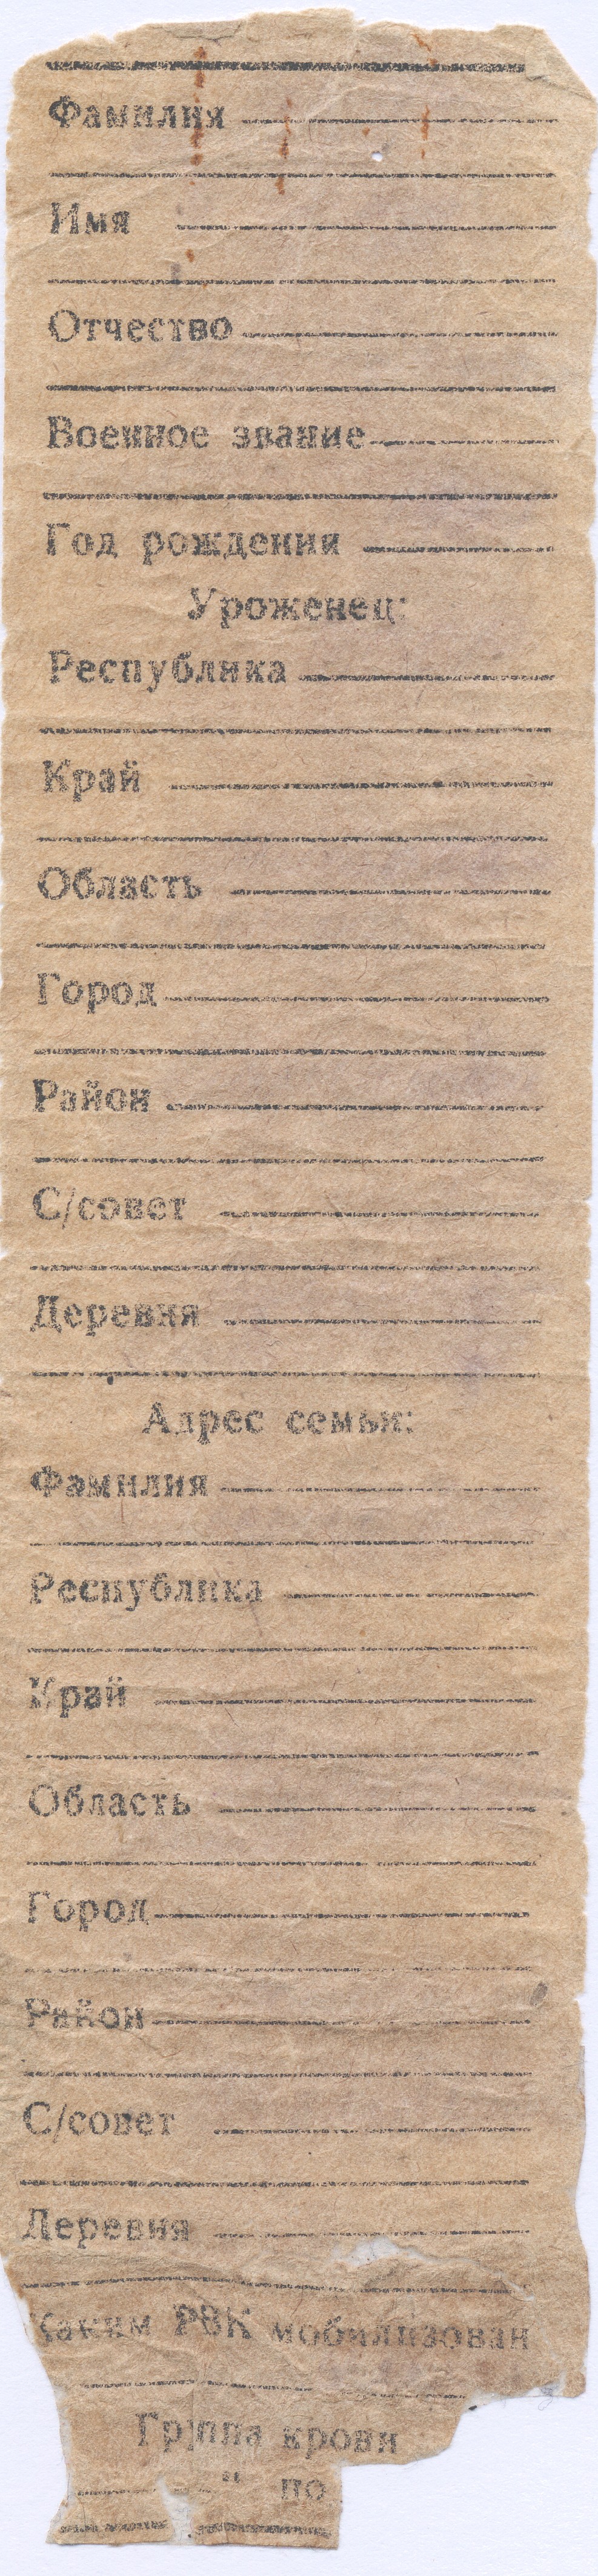 Фамилия
Имя
Отчество
Военное звание
Год рождения
Уроженец:
Республика
Край
Область
Город
Район
С/совет
Деревня
Адрес семьи:
Фамилия
Республика
Край
Область
Город
Район
С/совет
Деревня
Каким РВК мобилизован
Группа крови
" по